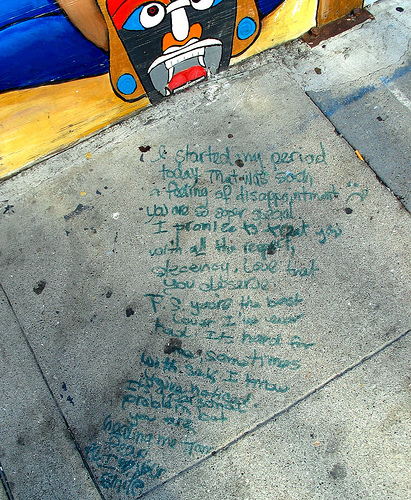 I started my period
today. That was such
a feeling of disappointment
you are so super special
I promise to treat you
with all the respect,
decency, love that
you deserve.
P.S. you're the best
lover I've ever
had. It's hard for
me sometimes
with sex, I know
problem but
you are
healing me from
fear
I your